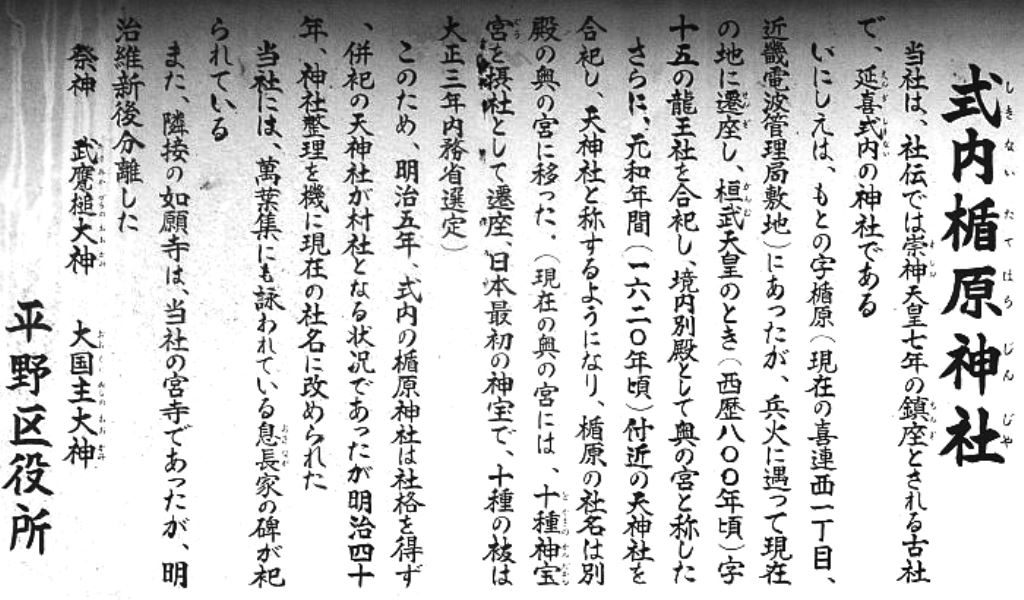 式内楯原神社
当社は、社伝では崇神天皇七年の鎮座とされる古社
で、延喜式内の神社である
いにしえは、もとの字楯原(現在の喜連西一丁目、
近畿電波管理局敷地)にあったが、兵火に遇って現在
の地に遷座し、桓武天皇のとき(西歴八〇〇年頃)字
十五の龍王社を合祀し、境内別殿として奥の宮と称した
さらに、元和年間(一六二〇年頃)付近の天神社を
合祀し、天神社と称するようになり、楯原の社名は別
殿の奥の宮に移った.(現在の奥の宮には、十種神宝
宮を摂社として遷座、日本最初の神宝で、十種の祓は
大正三年内務省選定)
このため、明治五年、式内の楯原神社は社格を得ず
、併祀の天神社が村社となる状況であったが明治四十
年、神社整理を機に現在の社名に改められた
当社には、萬葉集にも詠われている息長家の碑が祀
られている
また、隣接の如願寺は、当社の宮寺であったが、明
治維新後分離した
祭神 武甕槌大神 大国主大神
平野区役所